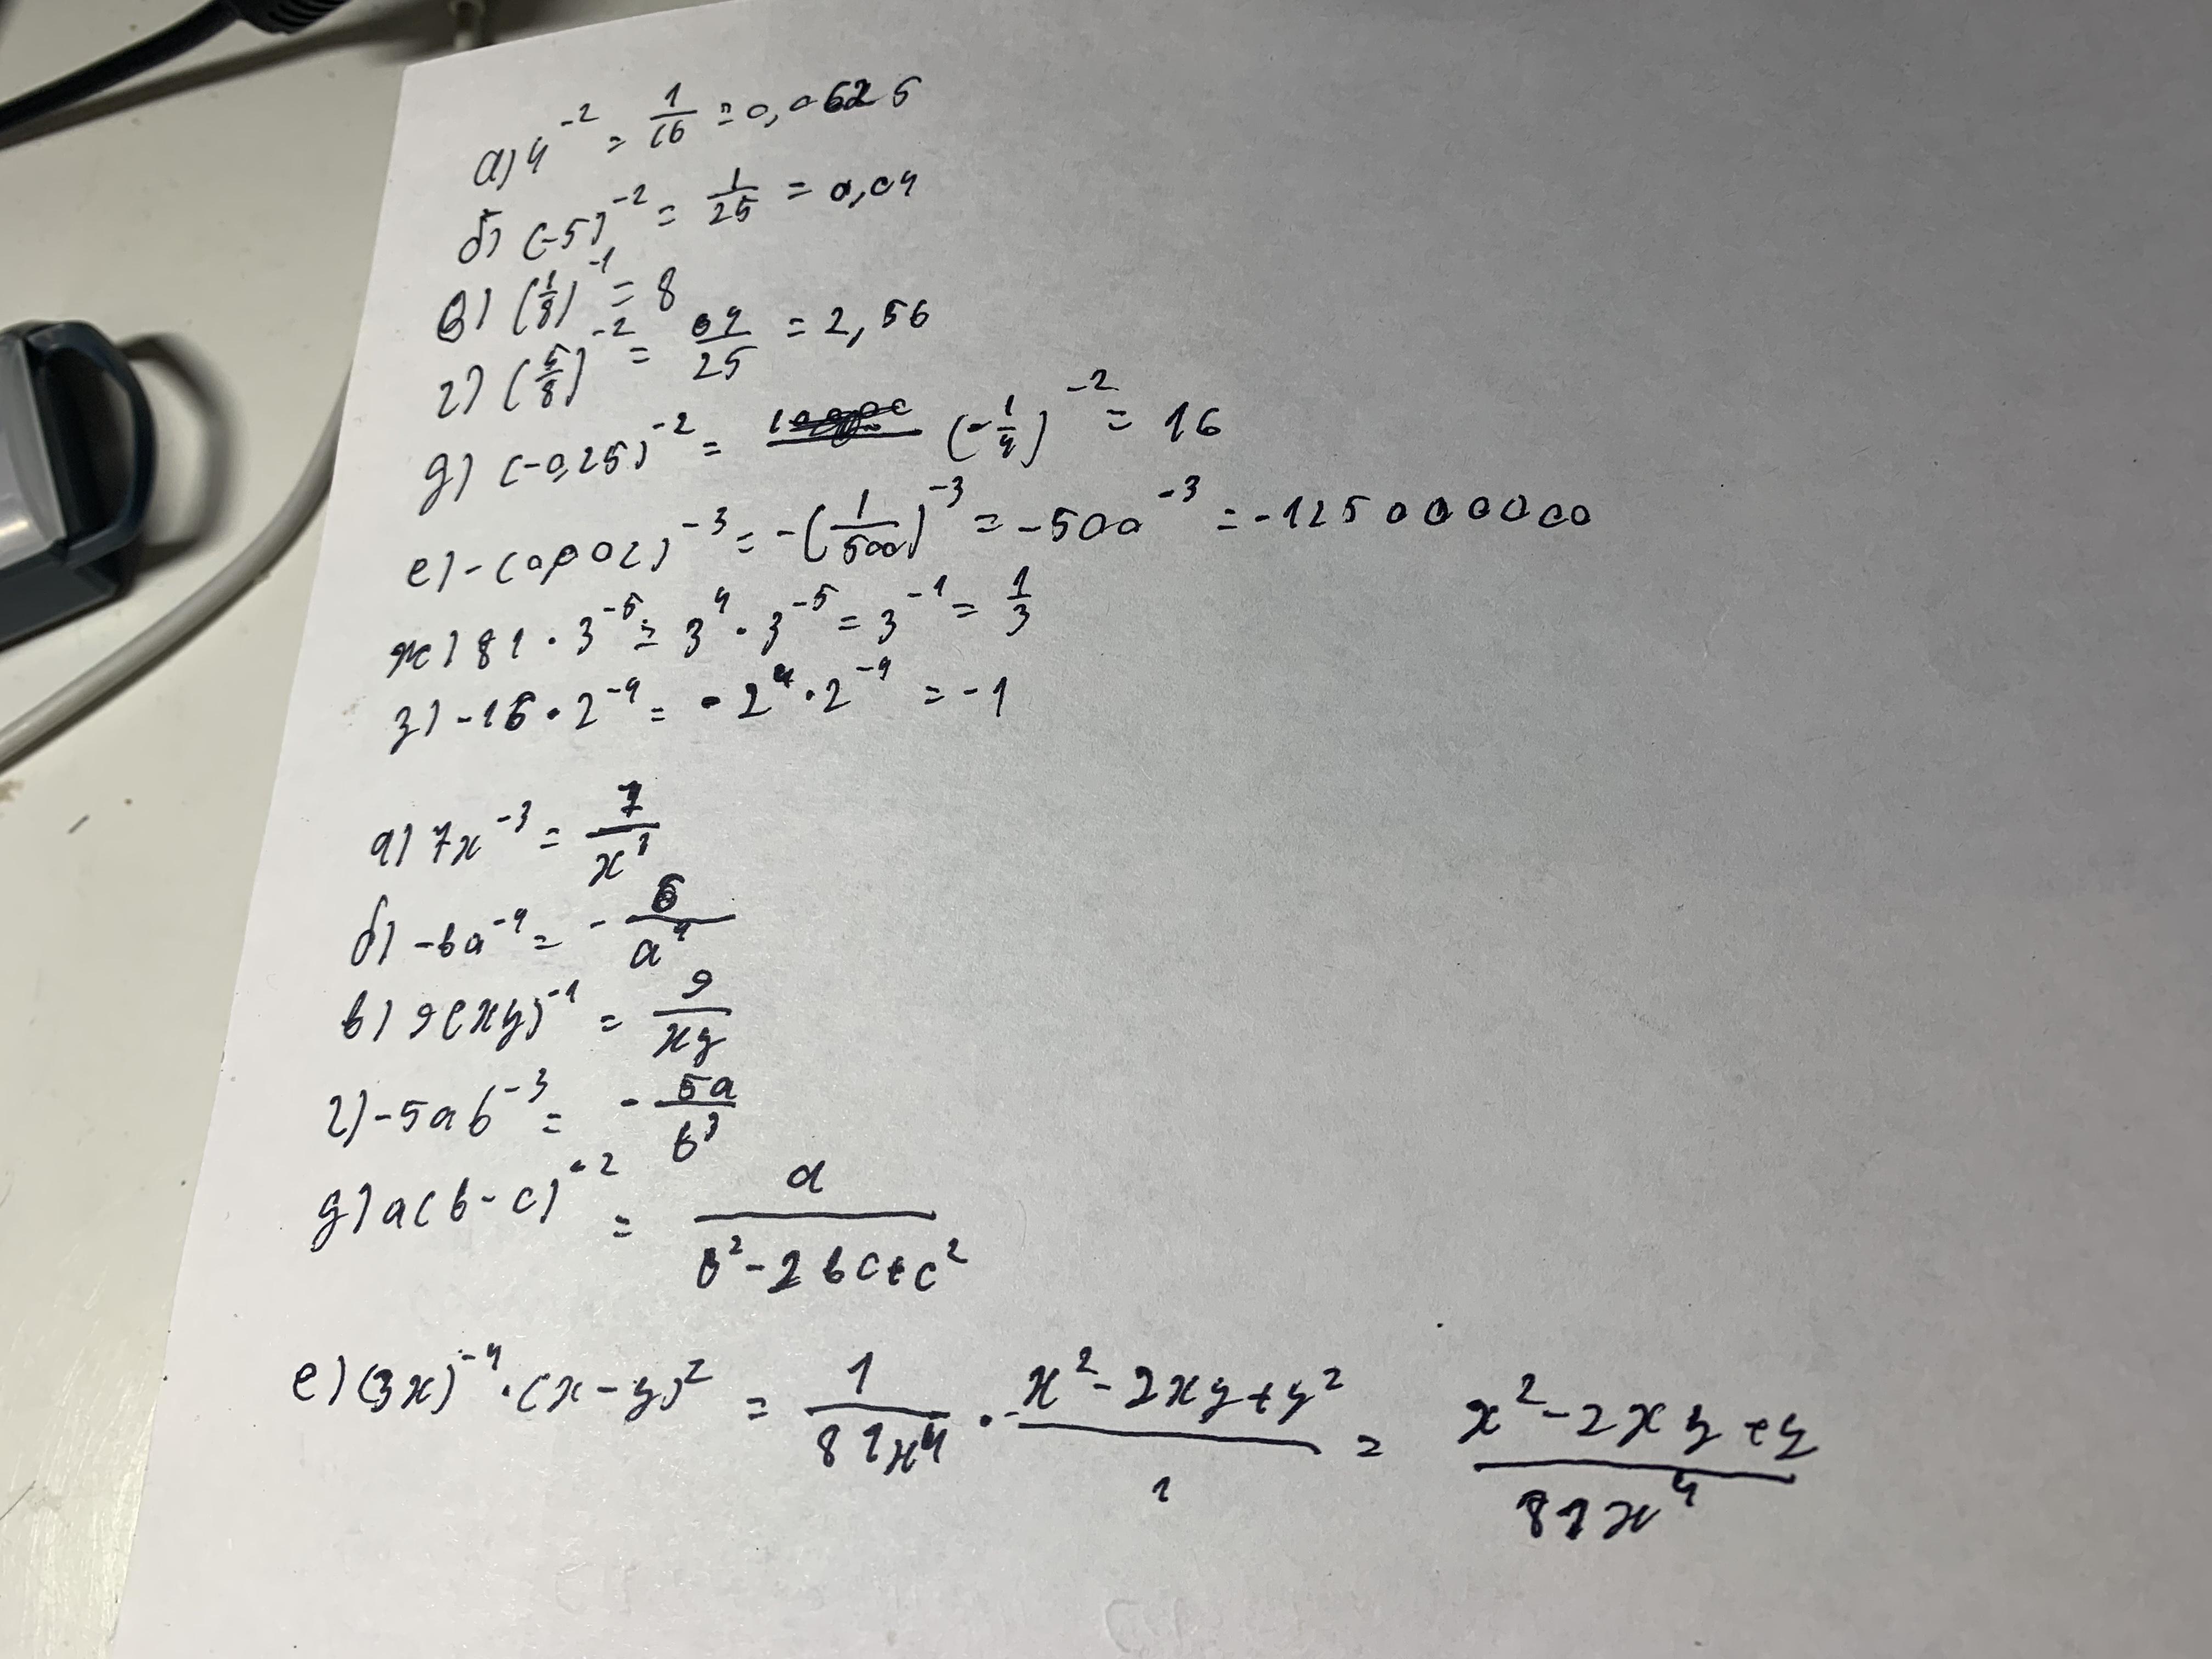 а) 4^-2 = 1/16 = 0,0625
б) (-5)^-2 = 1/25 = 0,04
в) (1/8)^-1 = 8
г) (5/8)^-2 = 64/25 = 2,56
д) (-0,25)^-2 = (-1/4)^-2 = 16
е) -(0,002)^-3 = -(1/500)^-3 = -500^-3 = -125000000
ж) 81 · 3^-5 = 3^4 · 3^-5 = 3^-1 = 1/3
з) -16 · 2^-4 = -2^4 · 2^-4 = -1
а) 7x^-3 = 7/x^3
б) -6a^-4 = -6/a^4
в) 9(xy)^-1 = 9/xy
г) -5ab^-3 = -5a/b^3
д) a(b-c)^-2 = a/(b^2-2bc+c^2)
е) (3x)^-4 · (x-y)^2 = 1/81x^4 · (x^2-2xy+y^2)/1 = (x^2-2xy+y)/81x^4